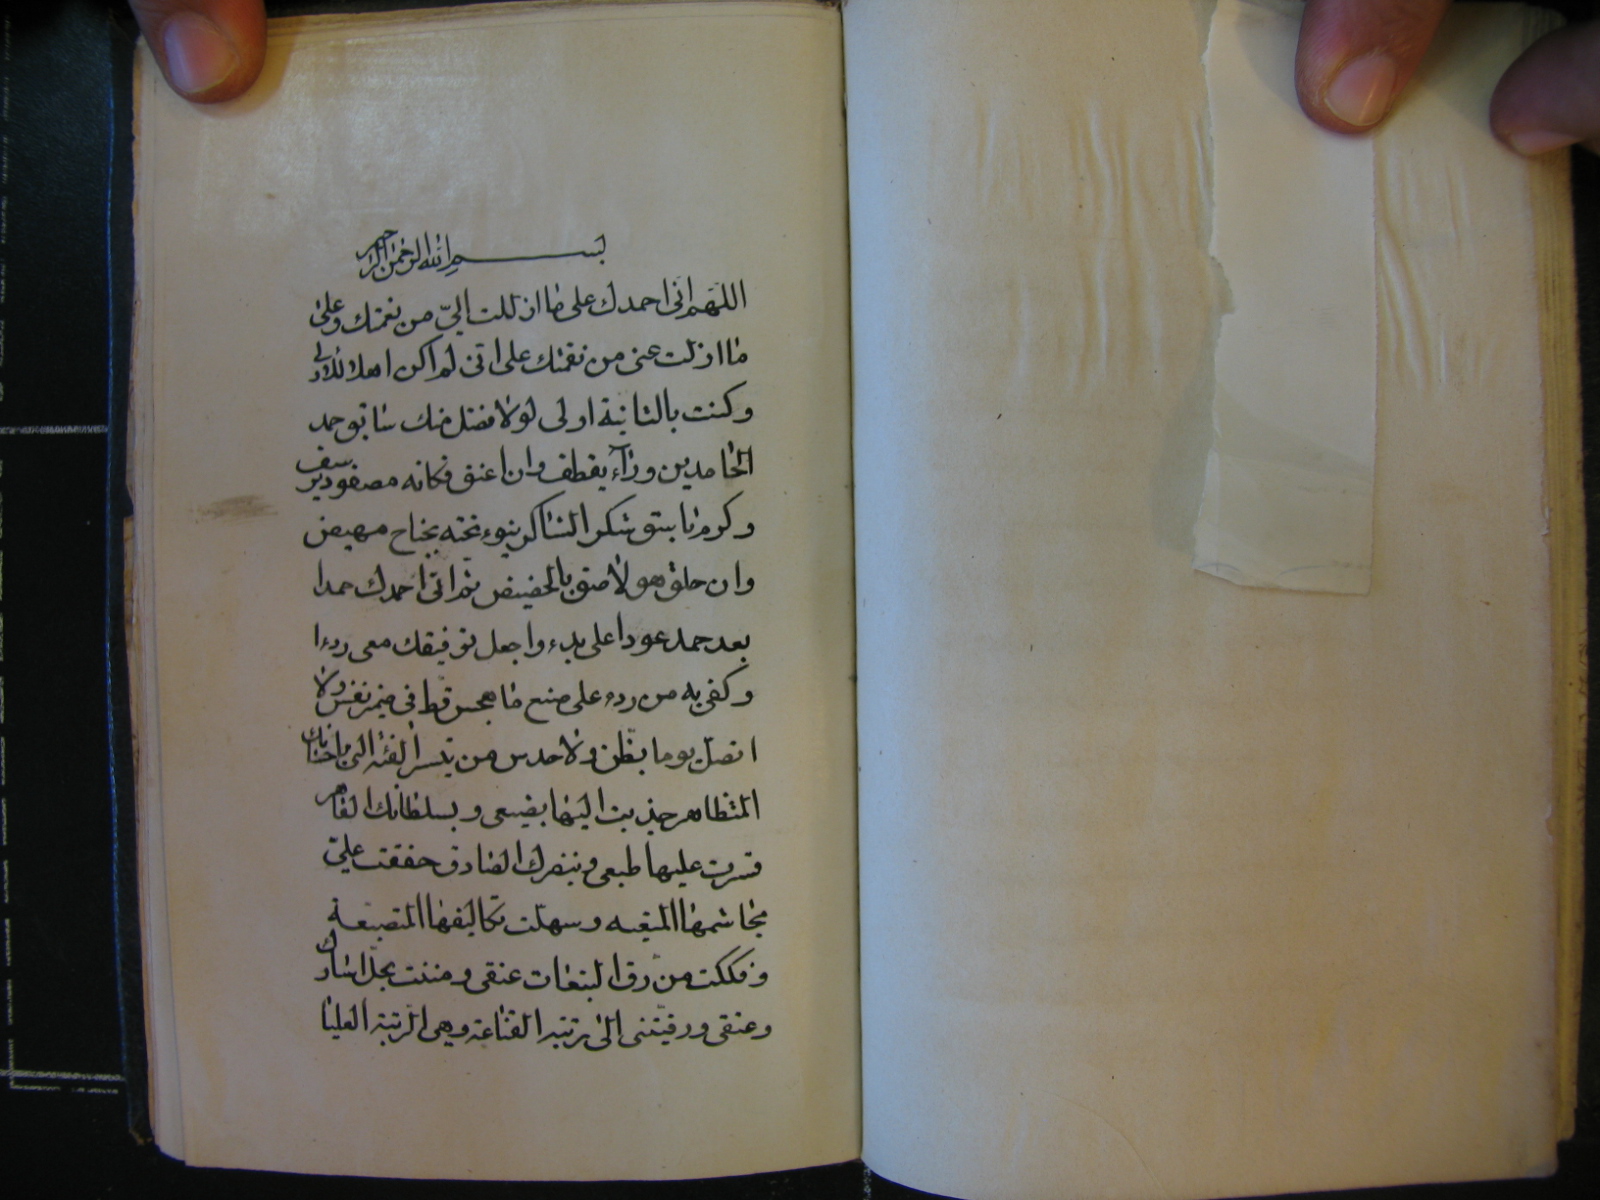 بسم الله الرحمن الرحيم
اللهم انى احمدك على ما ازللت الىّ من نعمتك وعلى
ما ازلت عنى من نقمتك على انى لم اكن اهلا للاولى
وكنت بالثانية اولى لولا فضل منك سابق حمد
الحامدين ورآءه يقطف وان اعنق فكانه مصفود يرسف
وكرم تابتوق شكر الشاكرين ينوء تحته بجناح مهيض
وان حلق فهو لاصق بالحضيض ثم انى احمدك حمدا
بعد حمد عودا على بدء واجعل توفيقك معى ردءا
وكفى به من ردء على صنع ما هجس قط فى ضمير نفس ولا
اتصل يوما بظن ولا حدس من تيسر الفئة التى باحسانك
المتظاهر جذبت اليها بضبعى وبسلطانك القاهر
قسرت عليها طبعى وبنصرك الصادق خففت علىّ
مجاشمها المتعبه وسهلت تكاليفها المتصعبة
وفككت من رق التبعات عنقى ومننت بحل اسارى
وعتقى ورقيتنى الى رتبة القناعة وهى الرتبة العليا